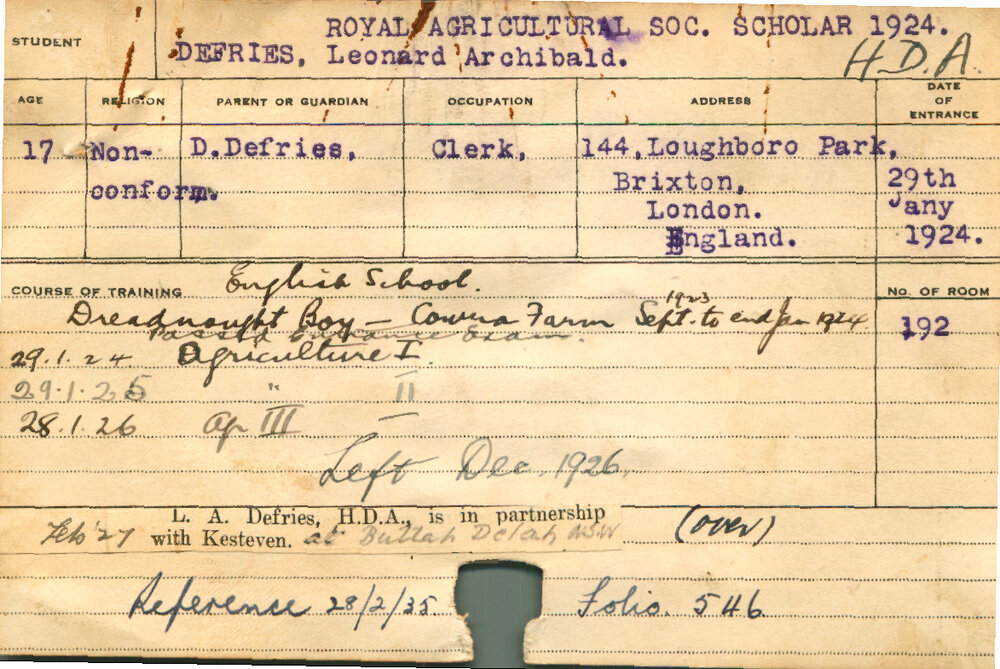 ROYAL AGRICULTURAL SOC. SCHOLAR 1924.
STUDENT
DEFRIES, Leonard Archibald.
H.D.A.
AGE RELIGION PARENT OR GUARDIAN OCCUPATION ADDRESS DATE OF ENTRANCE
17 Non- D.Defries, Clerk, 144, Loughboro Park,
conform. Brixton, 29th
London. Jany
England. 1924.
English School.
COURSE OF TRAINING No. OF ROOM
1923
Dreadnought Boy - Cowra Farm Sept. to end Jan 1924 192
Passed Entrance Exam.
29.1.24 Agriculture I
29.1.25 " II
28.1.26 Ag III
Left Dec. 1926
L. A. Defries, H.D.A., is in partnership
Feb '27 with Kesteven. at Bullah Delah N.S.W
(over)
Reference 28/2/35. Folio. 546